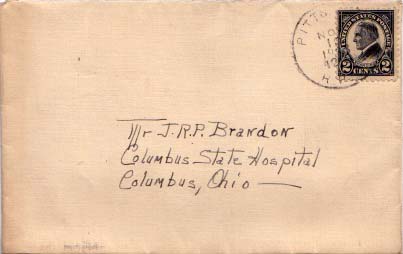 PITTS
UNITED STATES POSTAGE
2 CENTS 2
Mr J.R.P. Brandon
Columbus State Hospital
Columbus, Ohio —